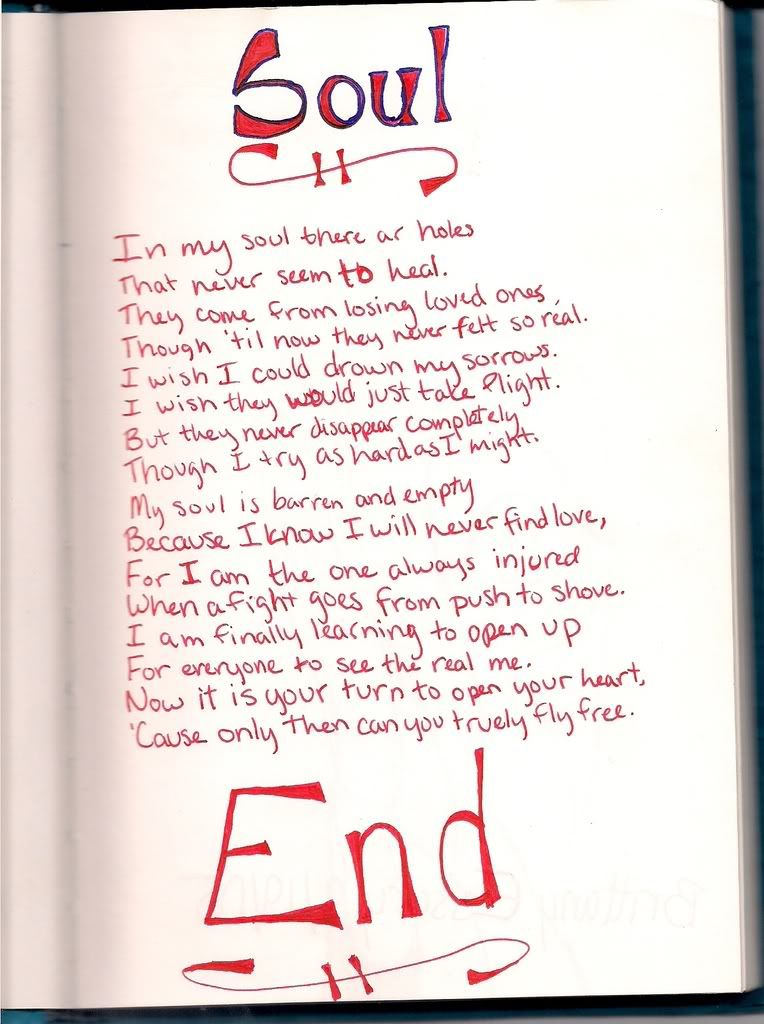 Soul
In my soul there ar holes
That never seem to heal.
They come from losing loved ones,
Though 'til now they never felt so real.
I wish I could drown my sorrows.
I wish they would just take flight.
But they never disappear completely
Though I try as hard as I might.
My soul is barren and empty
Because I know I will never find love,
For I am the one always injured
When a fight goes from push to shove.
I am finally learning to open up
For everyone to see the real me.
Now it is your turn to open your heart,
'Cause only then can you truely fly free.
End
Brittany